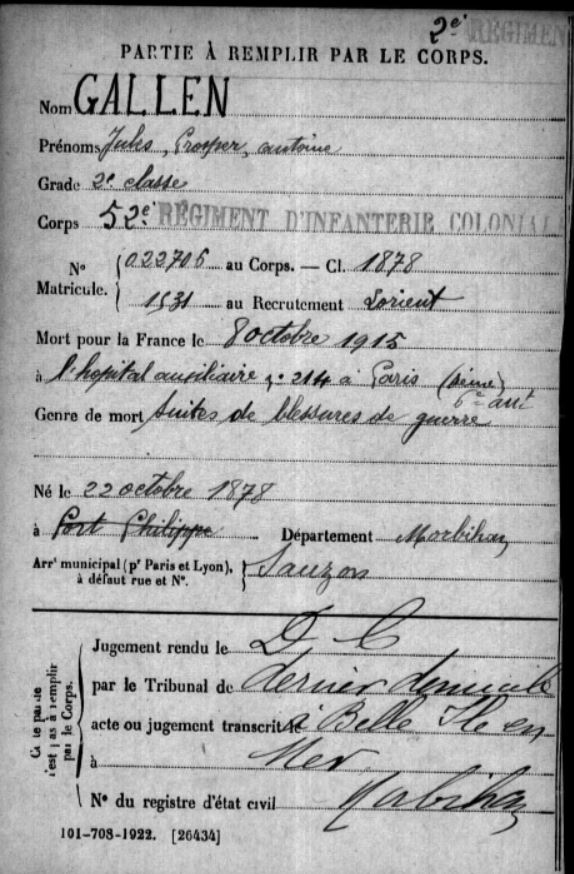 2e RÉGIMEN
PARTIE À REMPLIR PAR LE CORPS.
Nom GALLEN
Prénoms Jules, Prosper, antoine
Grade 2e classe
Corps 52e RÉGIMENT D'INFANTERIE COLONIALE
No 022706 au Corps. — Cl. 1878
Matricule. 1531 au Recrutement Lorient
Mort pour la France le 8 octobre 1915
à l'hopital auxiliaire no 214 à Paris (Seine)
6e arrt
Genre de mort Suites de blessures de guerre
Né le 22 octobre 1878
à Port Philippe Département Morbihan
Arrt municipal (pr Paris et Lyon), à défaut rue et No. Sauzon
Cette partie n'est pas à remplir par le Corps.
Jugement rendu le D C
par le Tribunal de dernier domicile
acte ou jugement transcrit le à Belle Ile en
à Mer
No du registre d'état civil Morbihan
101-708-1922. [26434]